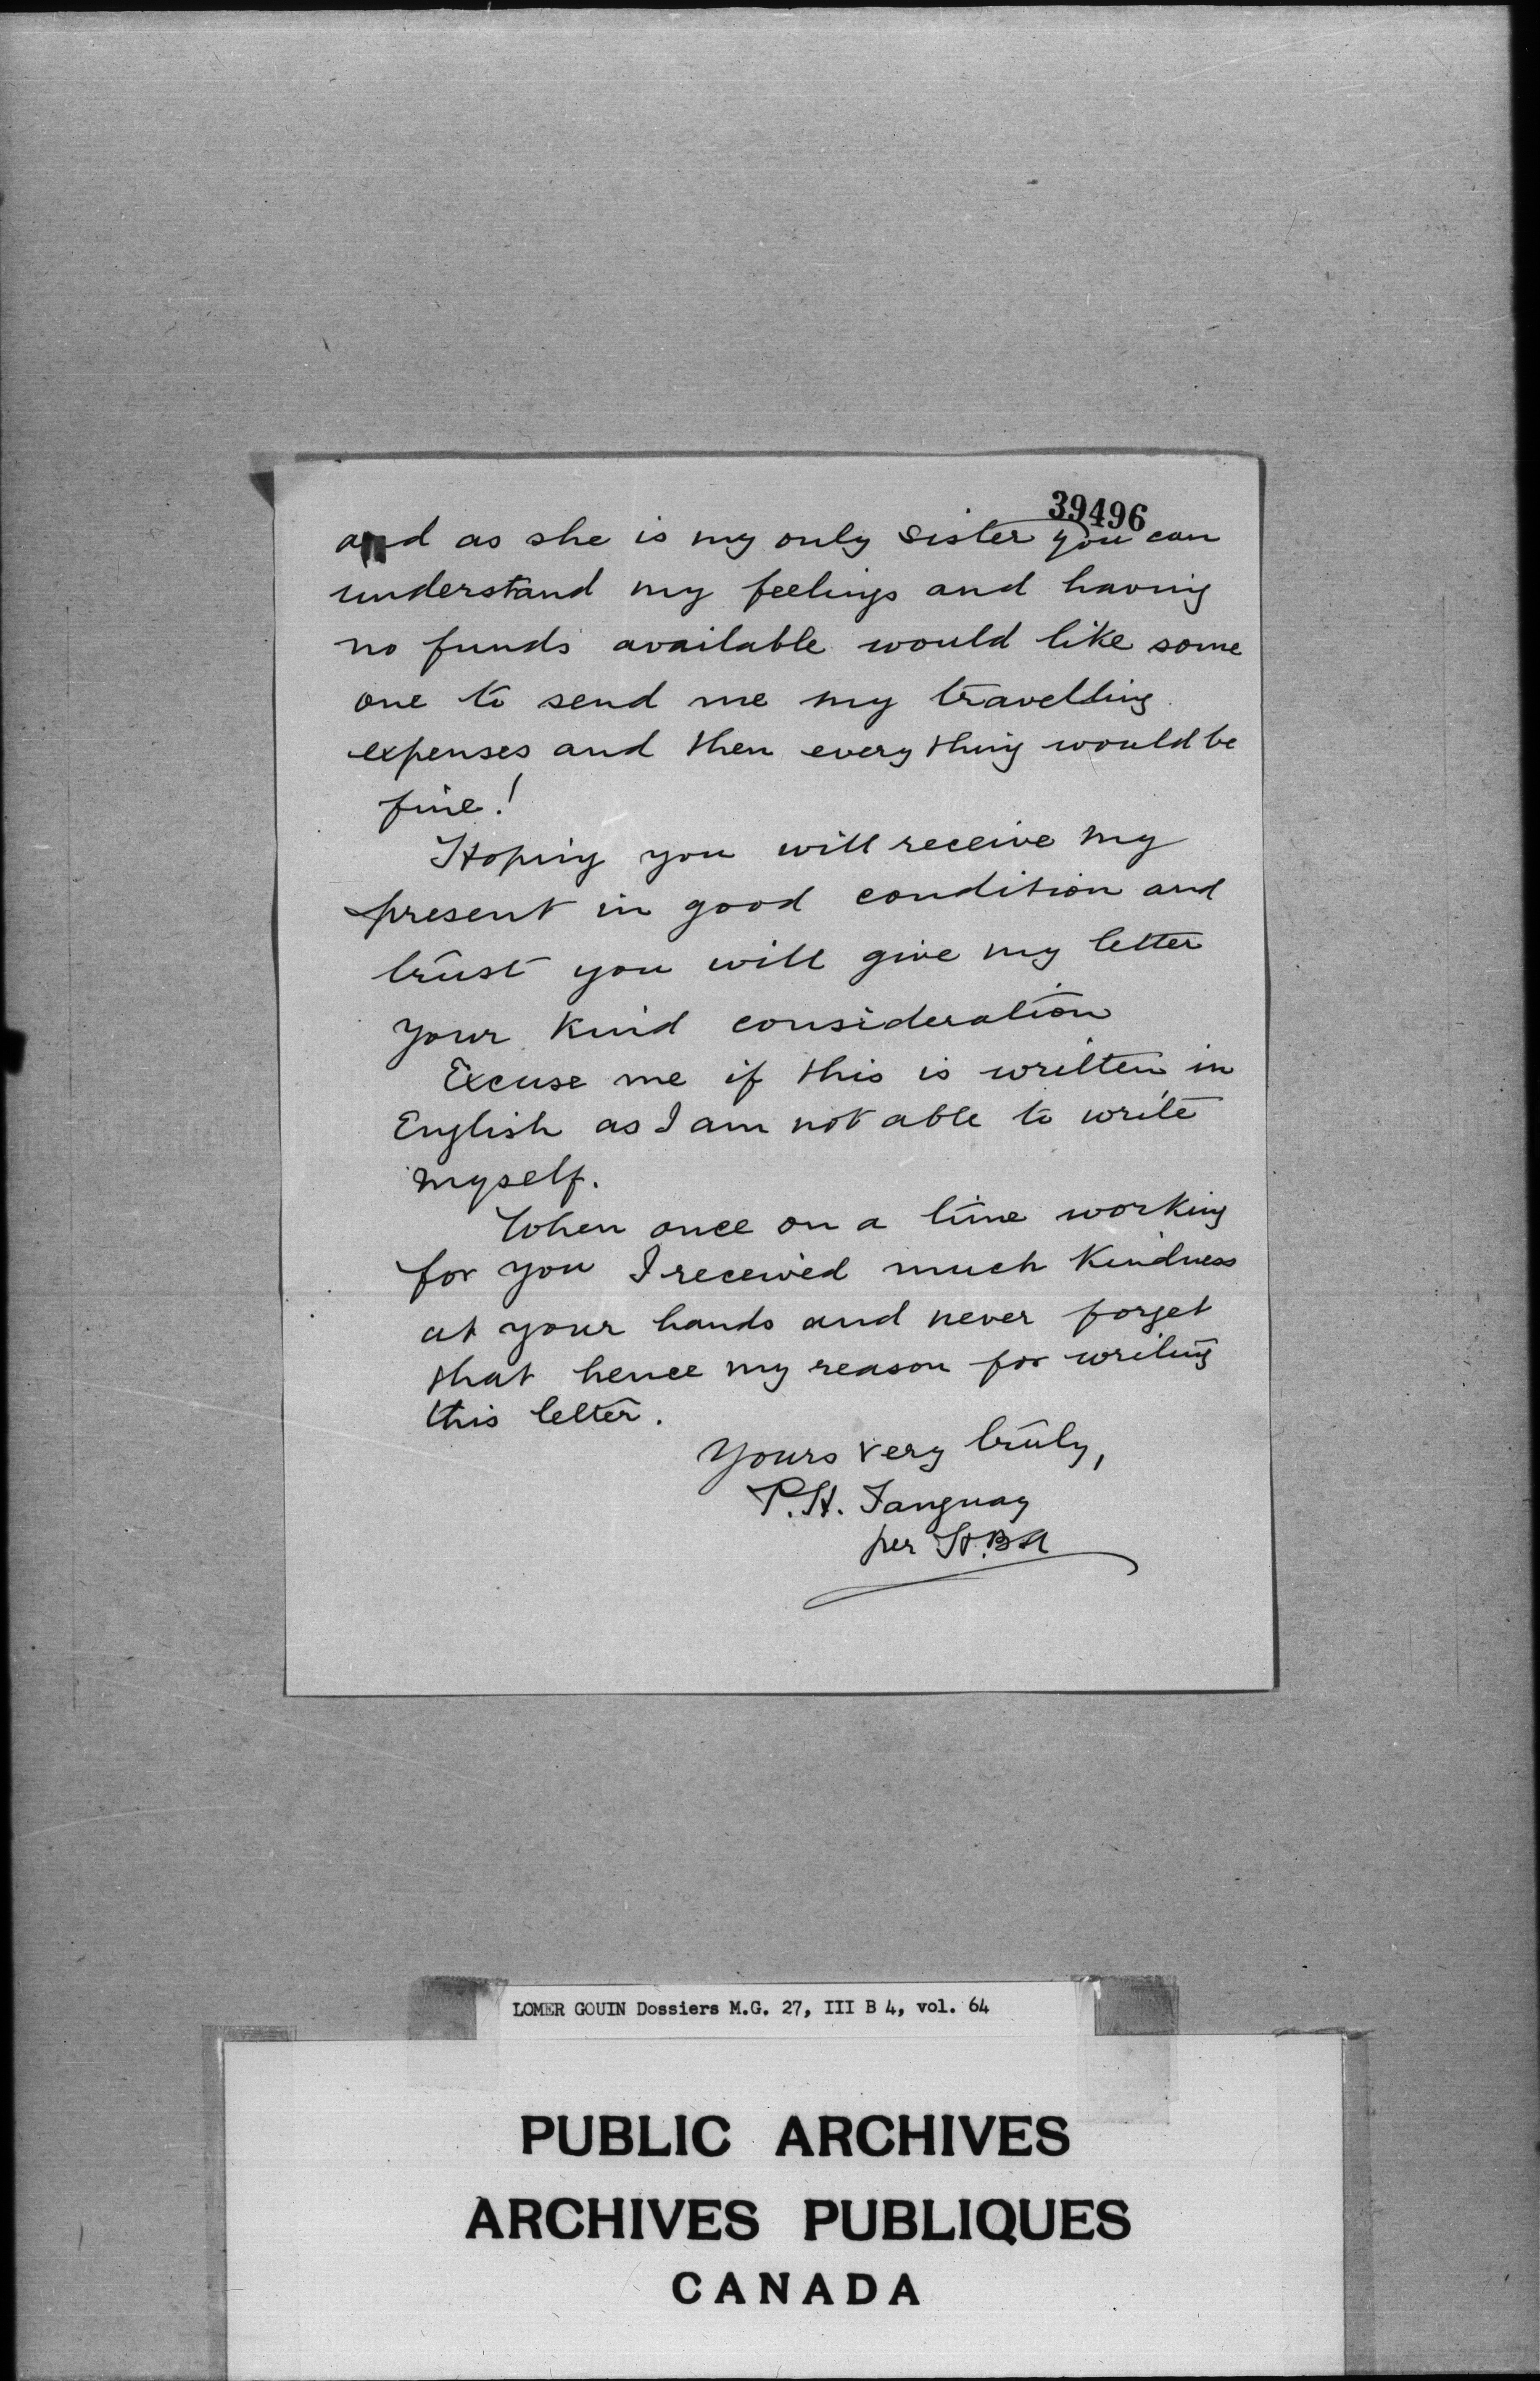 39496
and as she is my only sister you can
understand my feelings and having
no funds available would like some
one to send me my travelling
expenses and then every thing would be
fine!
Hoping you will receive my
present in good condition and
trust you will give my letter
your kind consideration
Excuse me if this is written in
English as I am not able to write
myself.
When once on a time working
for you I received much kindness
at your hands and never forget
that hence my reason for writing
this letter.
Yours very truly,
P.H. Tanguay
per
LOMER GOUIN Dossiers M.G. 27, III B 4, vol. 64
PUBLIC ARCHIVES
ARCHIVES PUBLIQUES
CANADA